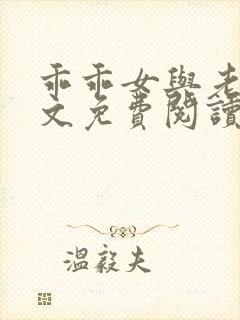 乖乖女與老
文免費閱讀
溫毅夫